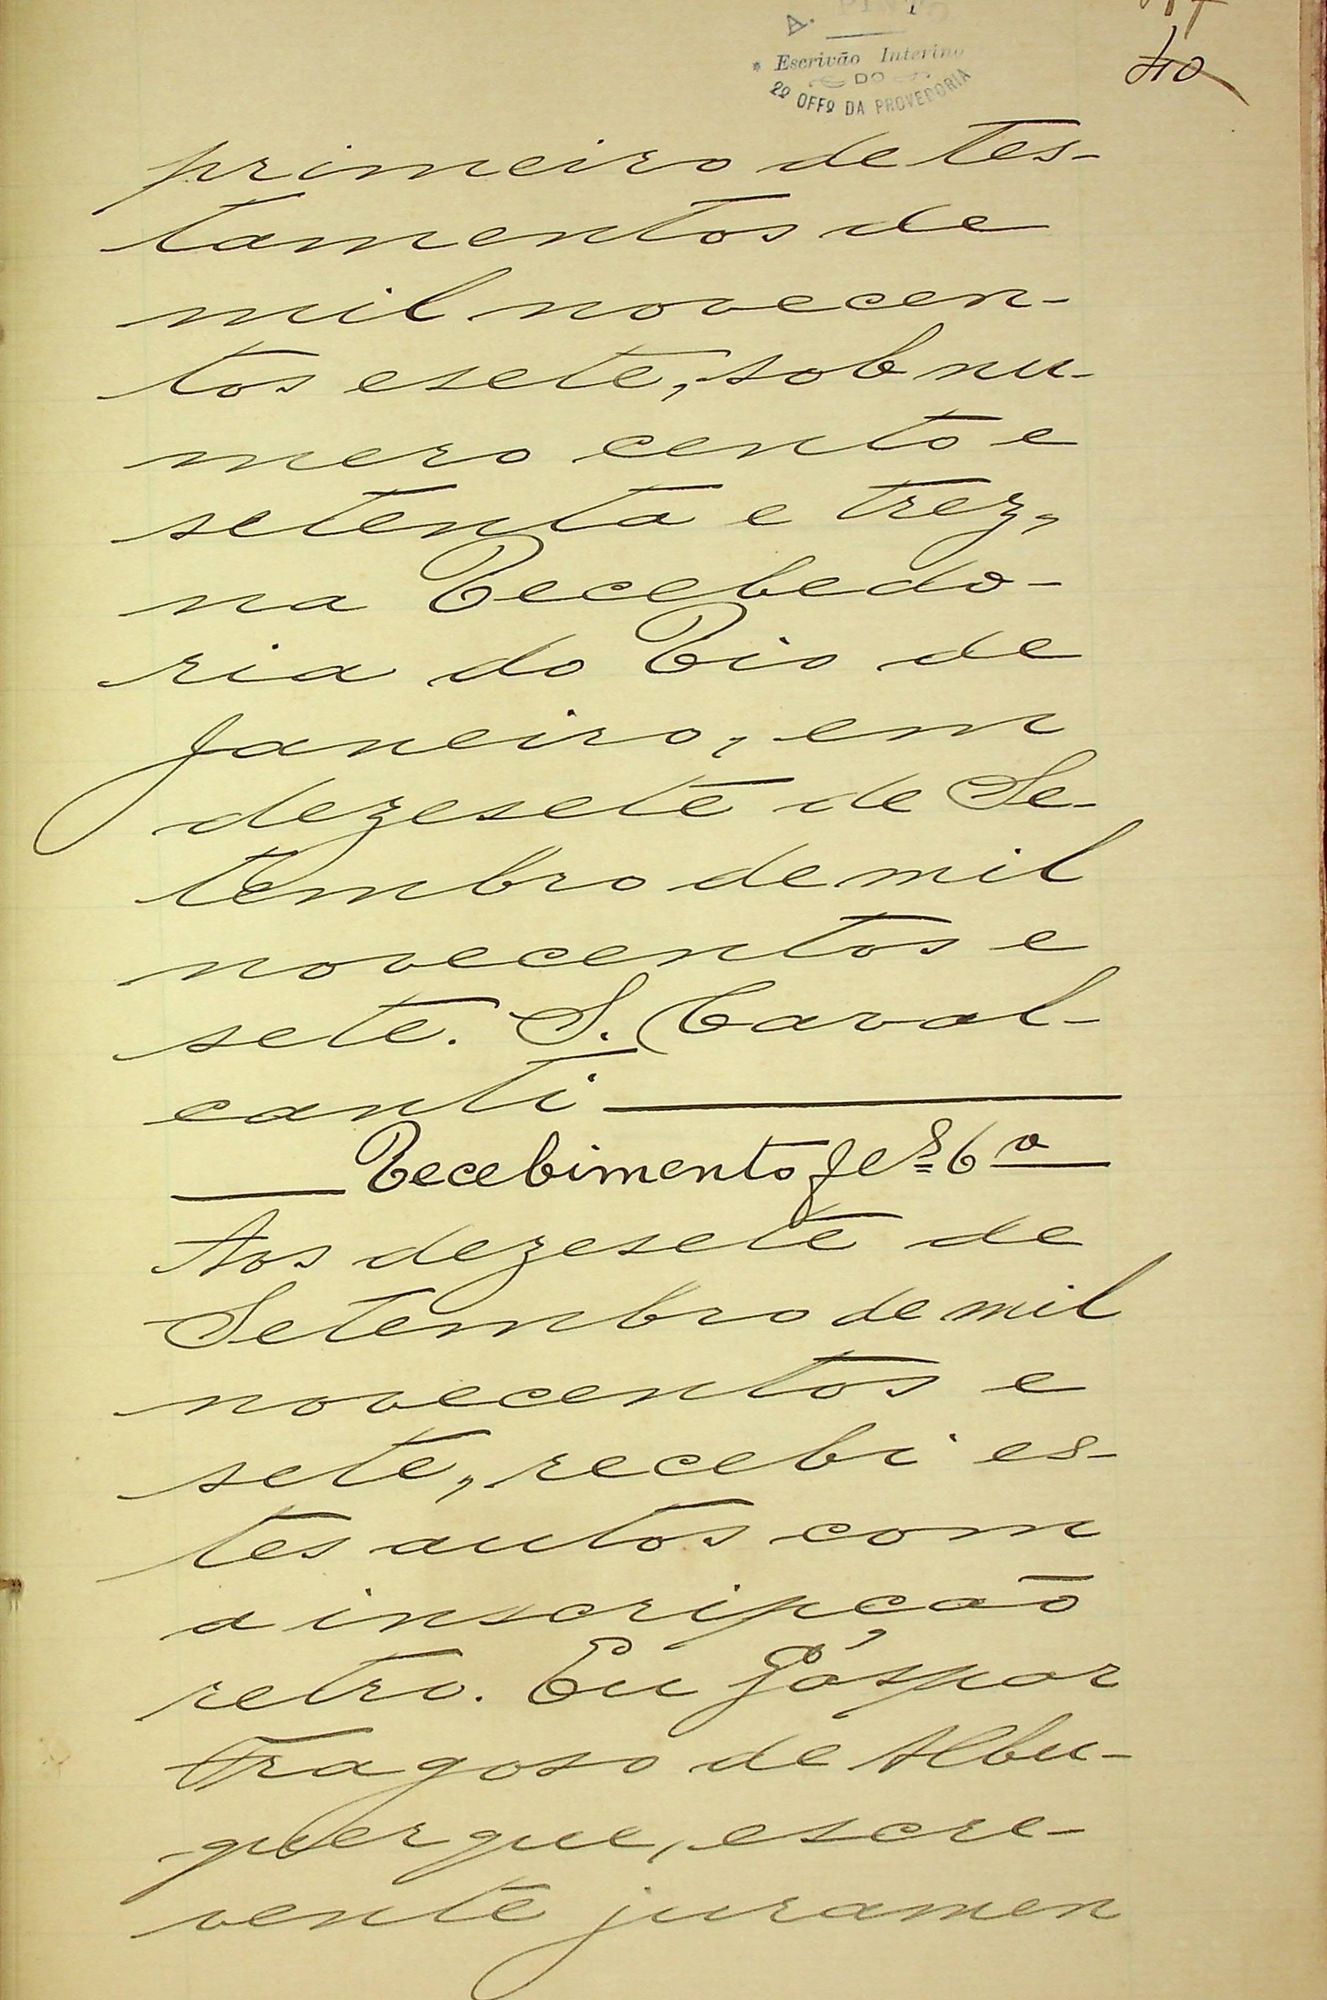 A. PINTO
* Escrivão Interino
DO
2º OFFº DA PROVEDORIA
40
primeiro de tes-
tamentos de
mil novecen-
tos e sete, sob nu-
mero cento e
setenta e trez,
na Recebedo-
ria do Rio de
Janeiro, em
dezesete de Se-
tembro de mil
novecentos e
sete. S. Caval-
canti
Recebimento fls 6 v
Aos dezesete de
Setembro de mil
novecentos e
sete, recebi es-
tes autos com
a inscripção
retro. Eu Gáspar
Fragoso de Albu-
querque, escre-
vente juramen